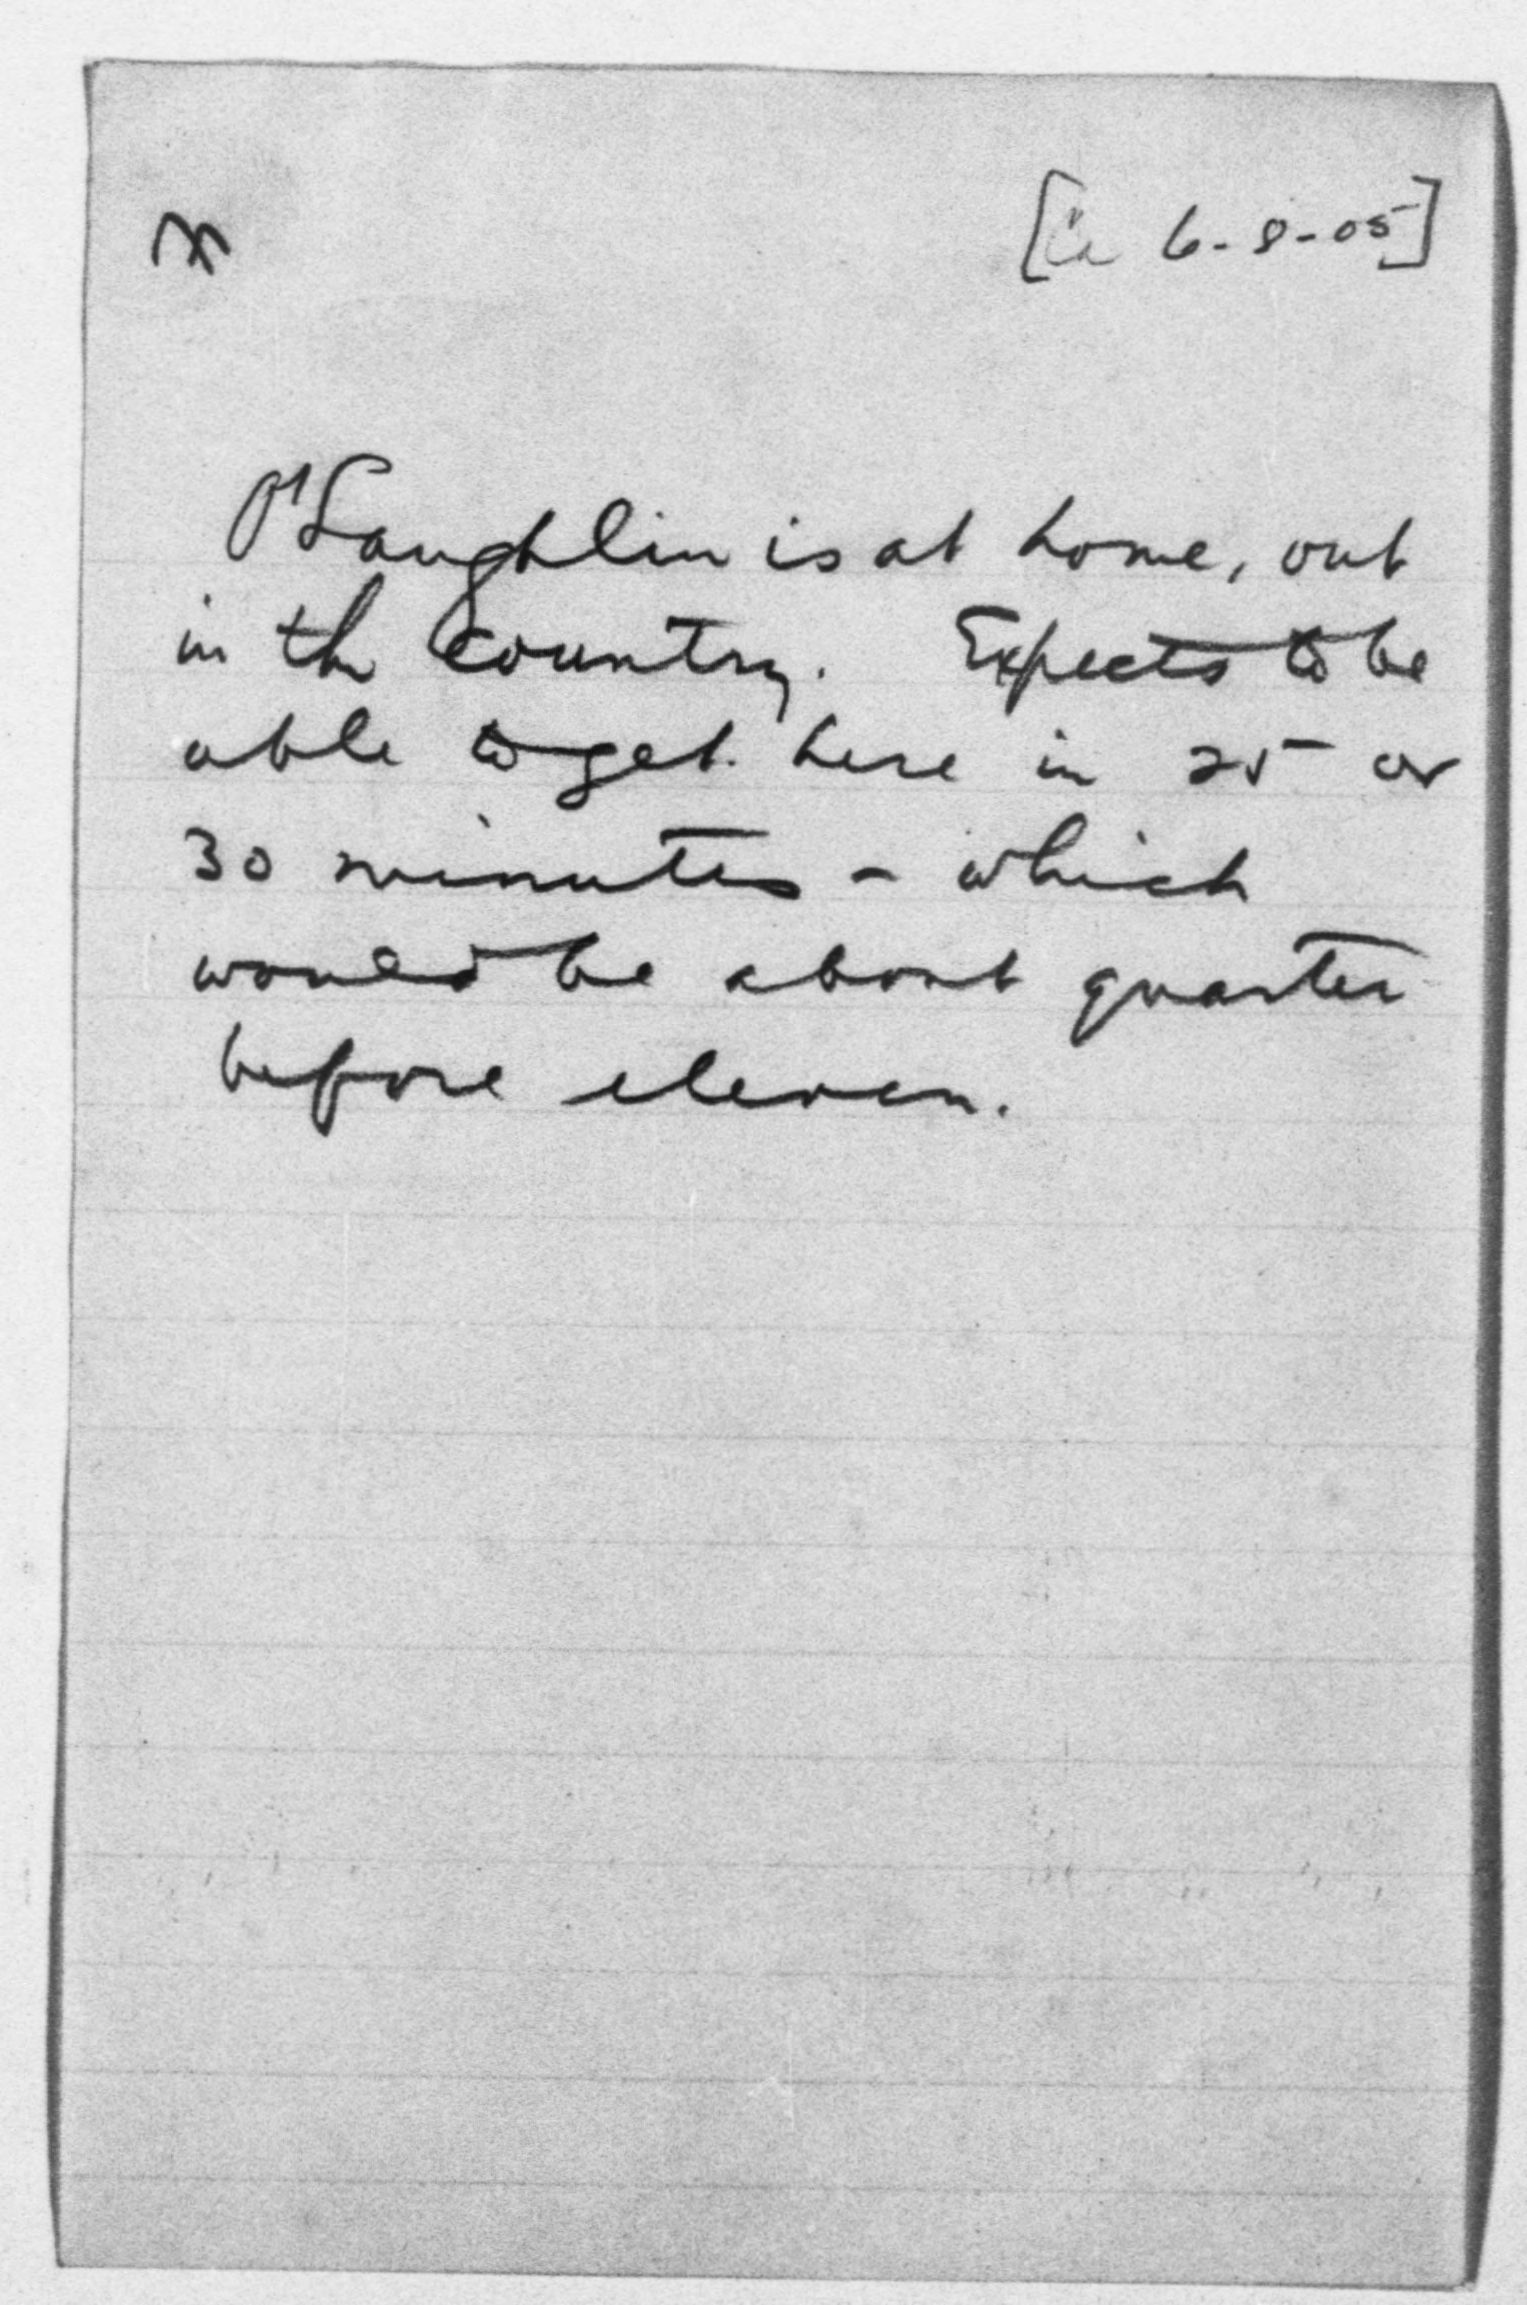 [Ca 6-8-05]
O'Laughlin is at home, out
in the country. Expects to be
able to get here in 25 or
30 minutes - which
would be about quarter
before eleven.